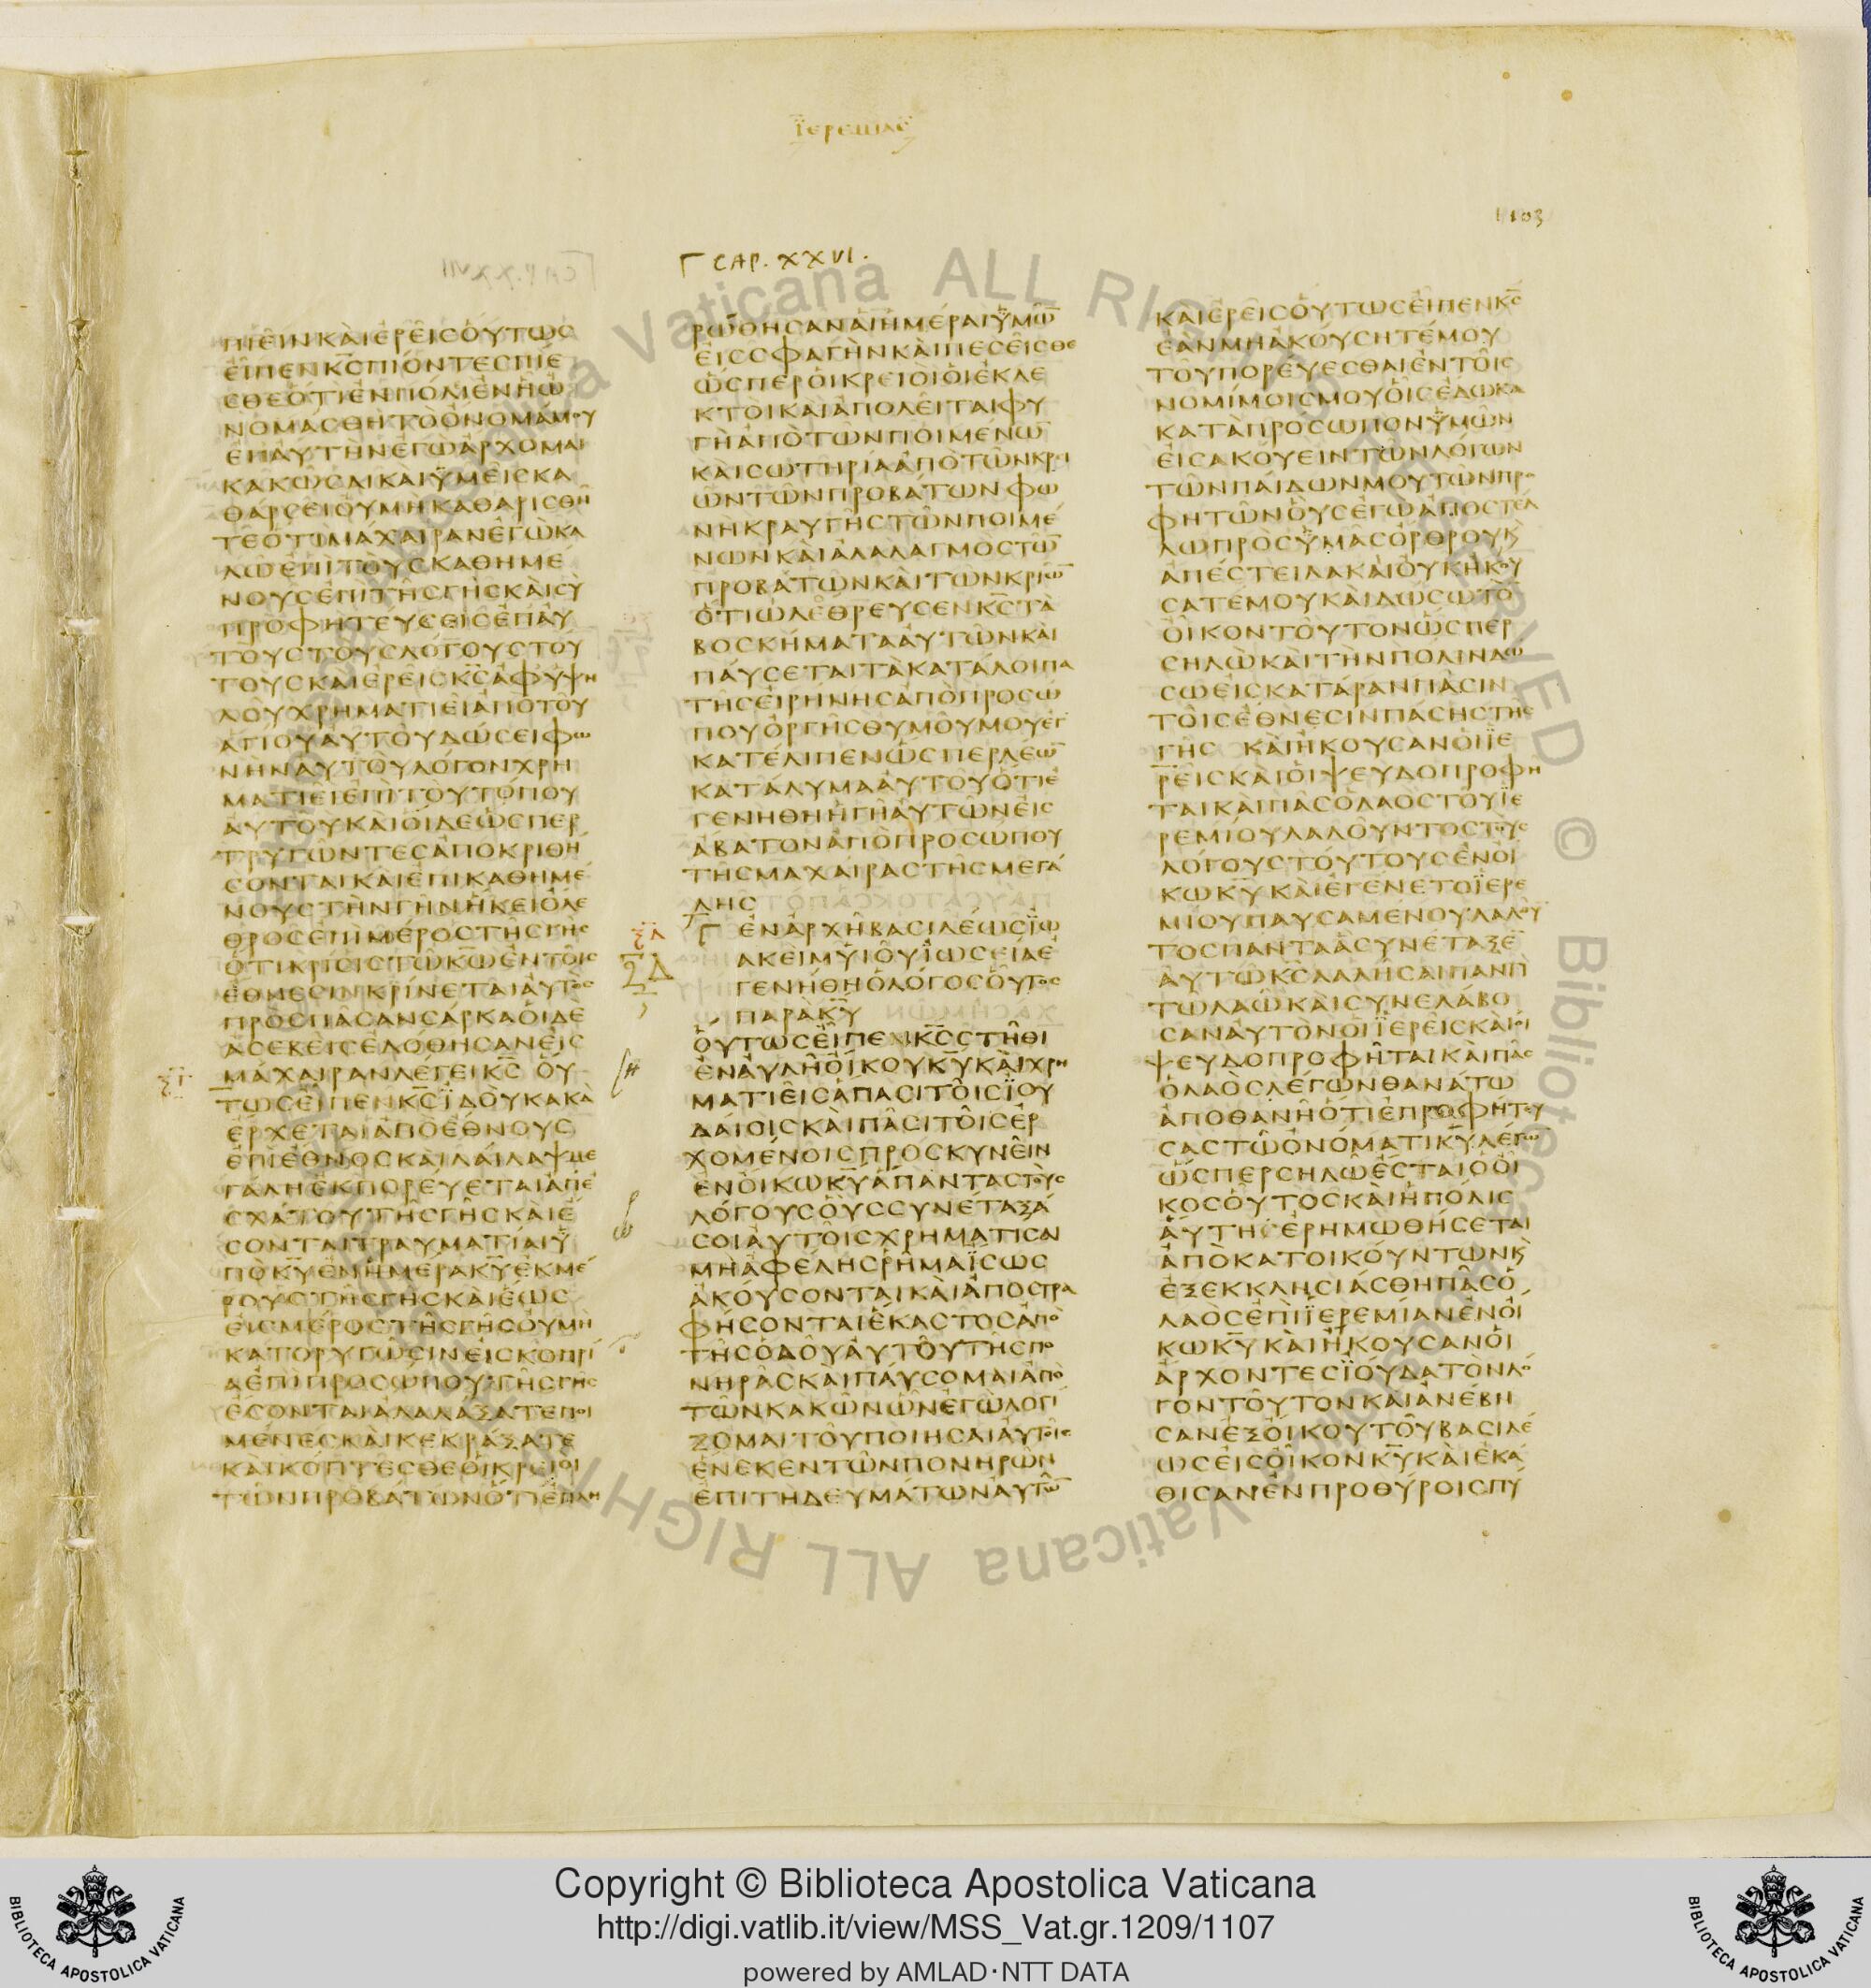 ϊερεμιας
1103
Γ CAP. XXVI.
πιεινκαιερεισουτωσ
ειπενκ̅σ̅πιοντεσπιε
σθεοτιενπολειενηω
νομασθητοονομαμου
επαυτηνεγωαρχομαι
κακωσαικαιϋμεισκα
θαρσειουμηκαθαρισθη
τεοτιμαχαιρανεγωκα
λωεπιτουσκαθημε
νουσεπιτησγησκαισυ
προφητευσεισεπαυ
τουστουσλογουστου
τουσκαιερεισκ̅σ̅αφυψη
λουχρηματιειαποτου
αγιουαυτουδωσειφω
νηναυτουλογονχρη
ματιειεπιτουτοπου
αυτουκαιοιδεωσπερ
τρυγωντεσαποκριθη
σονταικαιεπικαθημε
νουστηνγηνηκειολε
θροσεπιμεροστησγησ
οτικρισιστωκ̅ω̅εντοισ
εθνεσινκρινεταιαυτοσ
προσπασανσαρκαοιδε
ασεβεισεδοθησανεισ
μαχαιρανλεγεικ̅σ̅ ου
τωσειπενκ̅σ̅ϊδουκακα
ερχεταιαποεθνουσ
επιεθνοσκαιλαιλαψμε
γαληεκπορευεταιαπε
σχατουτησγησκαιε
σονταιτραυματιαιϋ
ποκ̅υ̅ενημερακ̅υ̅εκμε
ρουστησγησκαιεωσ
εισμεροστησγησουμη
κατορυγωσινεισκοπρι
αεπιπροσωπουτησγησ
εσονταιαλαλαξατεποι
μενεσκαικεκραξατε
καικοπτεσθεοικρειοι
τωνπροβατωνοτιεπλη
ρωθησαναιημεραιϋμω̅
εισσφαγηνκαιπεσεισθε
ωσπεροικρειοιοιεκλε
κτοικαιαπολειταιφυ
γηαποτωνποιμενω̅
καισωτηριααποτωνκρι
ωντωνπροβατωνφω
νηκραυγηστωνποιμε
νωνκαιαλαλαγμοστω̅
προβατωνκαιτωνκριω̅
οτιωλεθρευσενκ̅σ̅τα
βοσκηματααυτωνκαι
παυσεταιτακαταλοιπα
τησειρηνησαποπροσω
πουοργησθυμουμουεγ
κατελιπενωσπερλεω̅
καταλυμααυτουοτιε
γενηθηηγηαυτωνεισ
αβατοναποπροσωπου
τησμαχαιραστησμεγα
λησ
εναρχηβασιλεωσϊω
ακειμυϊουϊωσειαε
γενηθηολογοσουτοσ
παρακ̅υ̅
ουτωσειπενκ̅σ̅στηθι
εναυληοικουκ̅υ̅καιχρη
ματιεισαπασιτοισϊου
δαιοισκαιπασιτοισερ
χομενοισπροσκυνειν
ενοικωκ̅υ̅απανταστουσ
λογουσουσσυνεταξα
σοιαυτοισχρηματισαι
μηαφελησρημαϊσωσ
ακουσονταικαιαποστρα
φησονταιεκαστοσαπο
τησοδουαυτουτησπο
νηρασκαιπαυσομαιαπο
τωνκακωνωνεγωλογι
ζομαιτουποιησαιαυτοισ
ενεκεντωνπονηρων
επιτηδευματωναυτω̅
καιερεισουτωσειπενκ̅σ̅
εανμηακουσητεμου
τουπορευεσθαιεντοισ
νομιμοισμουοισεδωκα
καταπροσωπονϋμων
εισακουειντωνλογων
τωνπαιδωνμουτωνπρο
φητωνουσεγωαποστελ
λωπροσϋμασορθρουκ̀
απεστειλακαιουκηκου
σατεμουκαιδωσωτο̅
οικοντουτονωσπερ
σηλωκαιτηνπολινδω
σωεισκαταρανπασιν
τοισεθνεσινπασηστησ
γησ καιηκουσανοιϊε
ρεισκαιοιψευδοπροφη
ταικαιπασολαοστουϊε
ρεμιουλαλουντοστουσ
λογουστουτουσενοι
κωκ̅υ̅καιεγενετοϊερε
μιουπαυσαμενουλαλου̅
τοσπανταασυνεταξε̅
αυτωκ̅σ̅λαλησαιπαντι
τωλαωκαισυνελαβο
σαναυτονοιϊερεισκαιοι
ψευδοπροφηταικαιπασ
ολαοσλεγωνθανατω
αποθανηοτιεπροφητευ
σαστωονοματικ̅υ̅λεγω̅
ωσπερσηλωεσταιοοι
κοσουτοσκαιηπολισ
αυτηερημωθησεται
αποκατοικουντωνκ̀
εξεκκλησιασθηπασο
λαοσεπιϊερεμιανενοι
κωκ̅υ̅καιηκουσανοι
αρχοντεσϊουδατονλο
γοντουτονκαιανεβη
σανεξοικουτουβασιλε
ωσεισοικονκ̅υ̅καιεκα
θισανενπροθυροισπυ
Copyright © Biblioteca Apostolica Vaticana
http://digi.vatlib.it/view/MSS_Vat.gr.1209/1107
powered by AMLAD·NTT DATA
BIBLIOTECA APOSTOLICA VATICANA
BIBLIOTECA APOSTOLICA VATICANA